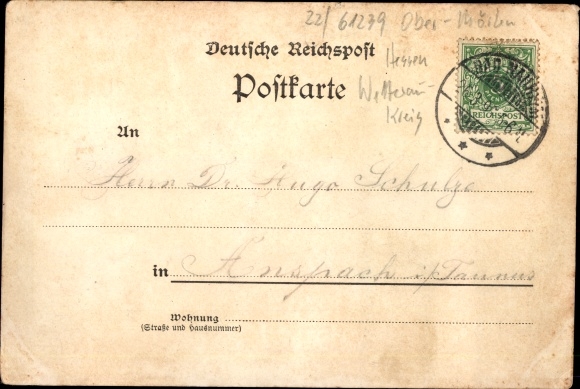 22/ 61239 Ober-Mörlen
Deutsche Reichspost
Hessen
Postkarte
Wetterau-
Kreis
REICHSPOST
BAD NAUHEIM
An
Herrn Dr. Hugo Schulze
in Anspach i/Taunus
Wohnung
(Straße und Hausnummer)